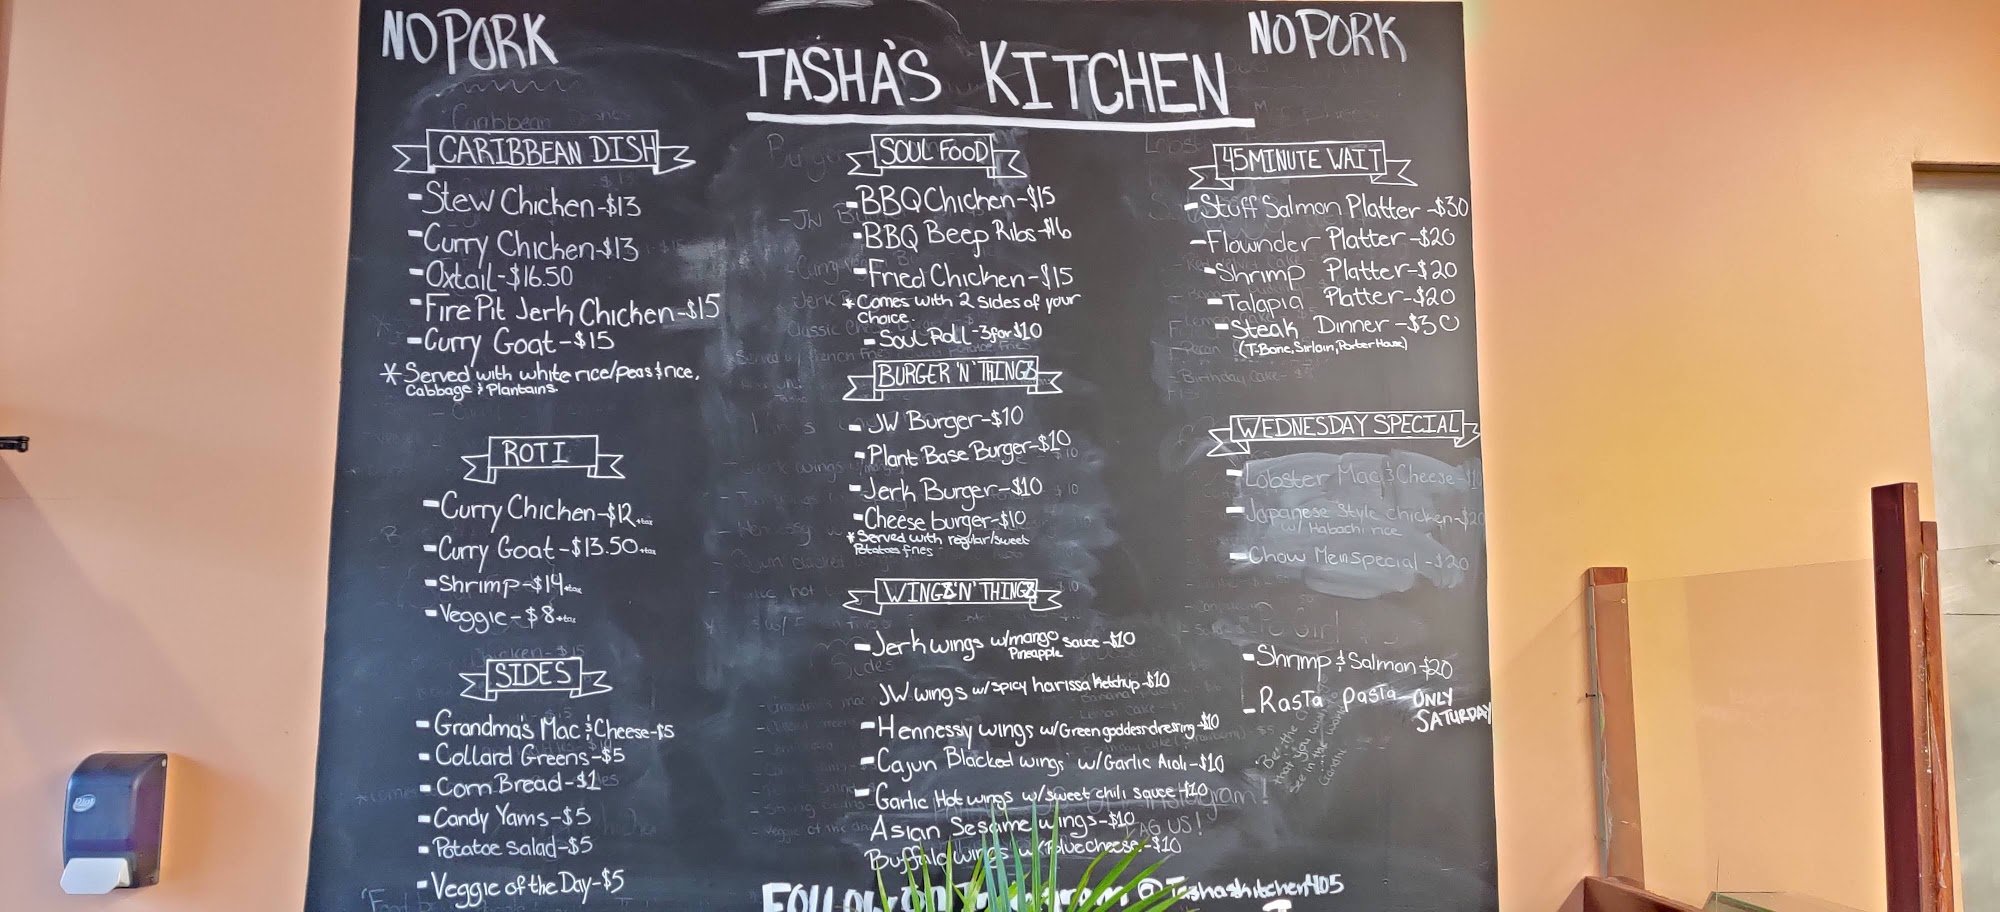 NO PORK
NO PORK
TASHA'S KITCHEN
CARIBBEAN DISH
-Stew Chicken-$13
-Curry Chicken-$13
-Oxtail-$16.50
-Fire Pit Jerk Chicken-$15
-Curry Goat-$15
*Served with white rice/peas & rice,
Cabbage & Plantains.
ROTI
-Curry Chicken-$12 +tax
-Curry Goat-$13.50 +tax
-Shrimp-$14 +tax
-Veggie-$8 +tax
SIDES
-Grandma's Mac & Cheese-$5
-Collard Greens-$5
-Corn Bread-$1
-Candy Yams-$5
-Potatoe Salad-$5
-Veggie of the Day-$5
SOUL FOOD
-BBQ Chicken-$15
-BBQ Beep Ribs-$16
-Fried Chicken-$15
*Comes with 2 sides of your
Choice.
-Soul Roll-3 for $10
BURGER 'N' THINGS
-JW Burger-$10
-Plant Base Burger-$10
-Jerk Burger-$10
-Cheese burger-$10
*Served with regular/sweet
Potatoes fries
WINGS 'N' THINGS
-Jerk wings w/mango sauce-$10
Pineapple
JW wings w/spicy harissa ketchup-$10
-Hennessy wings w/Green goddess dressing-$10
-Cajun Blacked wings w/Garlic Aioli-$10
-Garlic Hot wings w/sweet chili sauce-$10
Asian Sesame wings-$10
Buffalo wings w/Blue cheese-$10
45 MINUTE WAIT
-Stuff Salmon Platter-$30
-Flownder Platter-$20
-Shrimp Platter-$20
-Talapia Platter-$20
-Steak Dinner-$30
(T-Bone, Sirloin, Porter House)
WEDNESDAY SPECIAL
-Lobster Mac & Cheese-$10
-Japanese Style chicken-$20
w/ Habachi rice
-Chow Mein special-$20
-Shrimp & Salmon-$20
-Rasta Pasta-ONLY
SATURDAY
"Be the
that you
see in the world
Gandhi
TAG US!
FOLLOW on Instagram @Tashaskitchen405